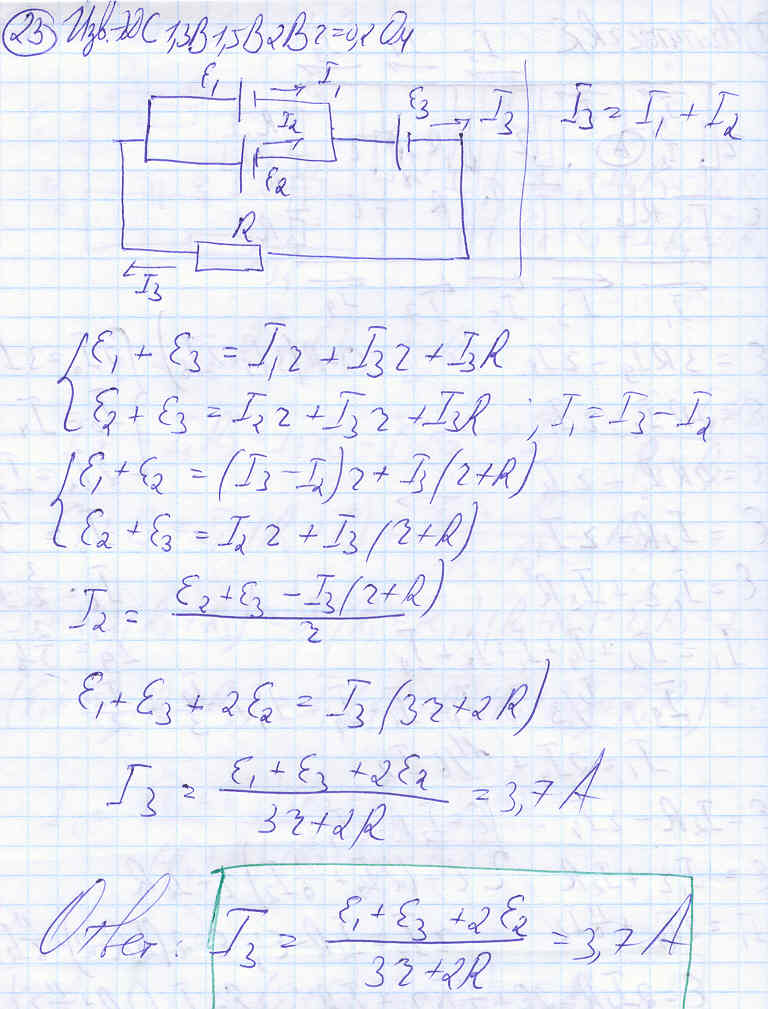 23 Изв. ЭДС 1,3В 1,5В 2В r=0,2 Ом
ℰ₁ I₁
I₂
ℰ₂
ℰ₃ I₃
R
I₃
I₃ = I₁ + I₂
ℰ₁ + ℰ₃ = I₁r + I₃r + I₃R
ℰ₂ + ℰ₃ = I₂r + I₃r + I₃R ; I₁ = I₃ − I₂
ℰ₁ + ℰ₂ = (I₃ − I₂)r + I₃(r+R)
ℰ₂ + ℰ₃ = I₂r + I₃(r+R)
I₂ = (ℰ₂ + ℰ₃ − I₃(r+R)) / r
ℰ₁ + ℰ₃ + 2ℰ₂ = I₃(3r+2R)
I₃ = (ℰ₁ + ℰ₃ + 2ℰ₂) / (3r+2R) = 3,7 А
Ответ: I₃ = (ℰ₁ + ℰ₃ + 2ℰ₂) / (3r+2R) = 3,7 А